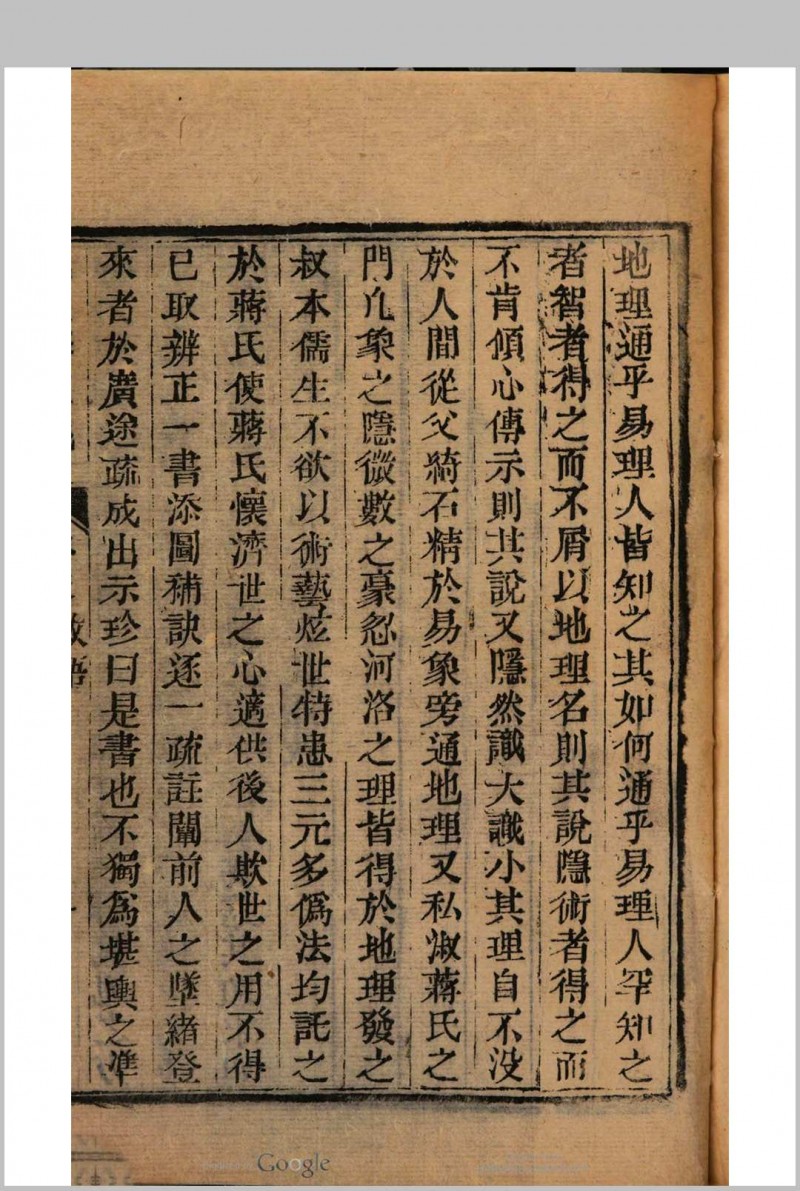 地理通乎易理人皆知之其如何通乎易理人罕知之
者智者得之而不屑以地理名則其說隱術者得之而
不肯傾心傳示則其說又隱然識大識小其理自不没
於人間從父綺石精於易象旁通地理又私淑蔣氏之
門凡象之隱微數之毫忽河洛之理皆得於地理發之
叔本儒生不欲以術藝炫世特患三元多僞法均託之
於蔣氏使蔣氏懷濟世之心適供後人欺世之用不得
已取辨正一書添圖補訣逐一疏註闡前人之墜緒登
來者於廣途疏成出示珍曰是書也不獨爲堪輿之準
Google